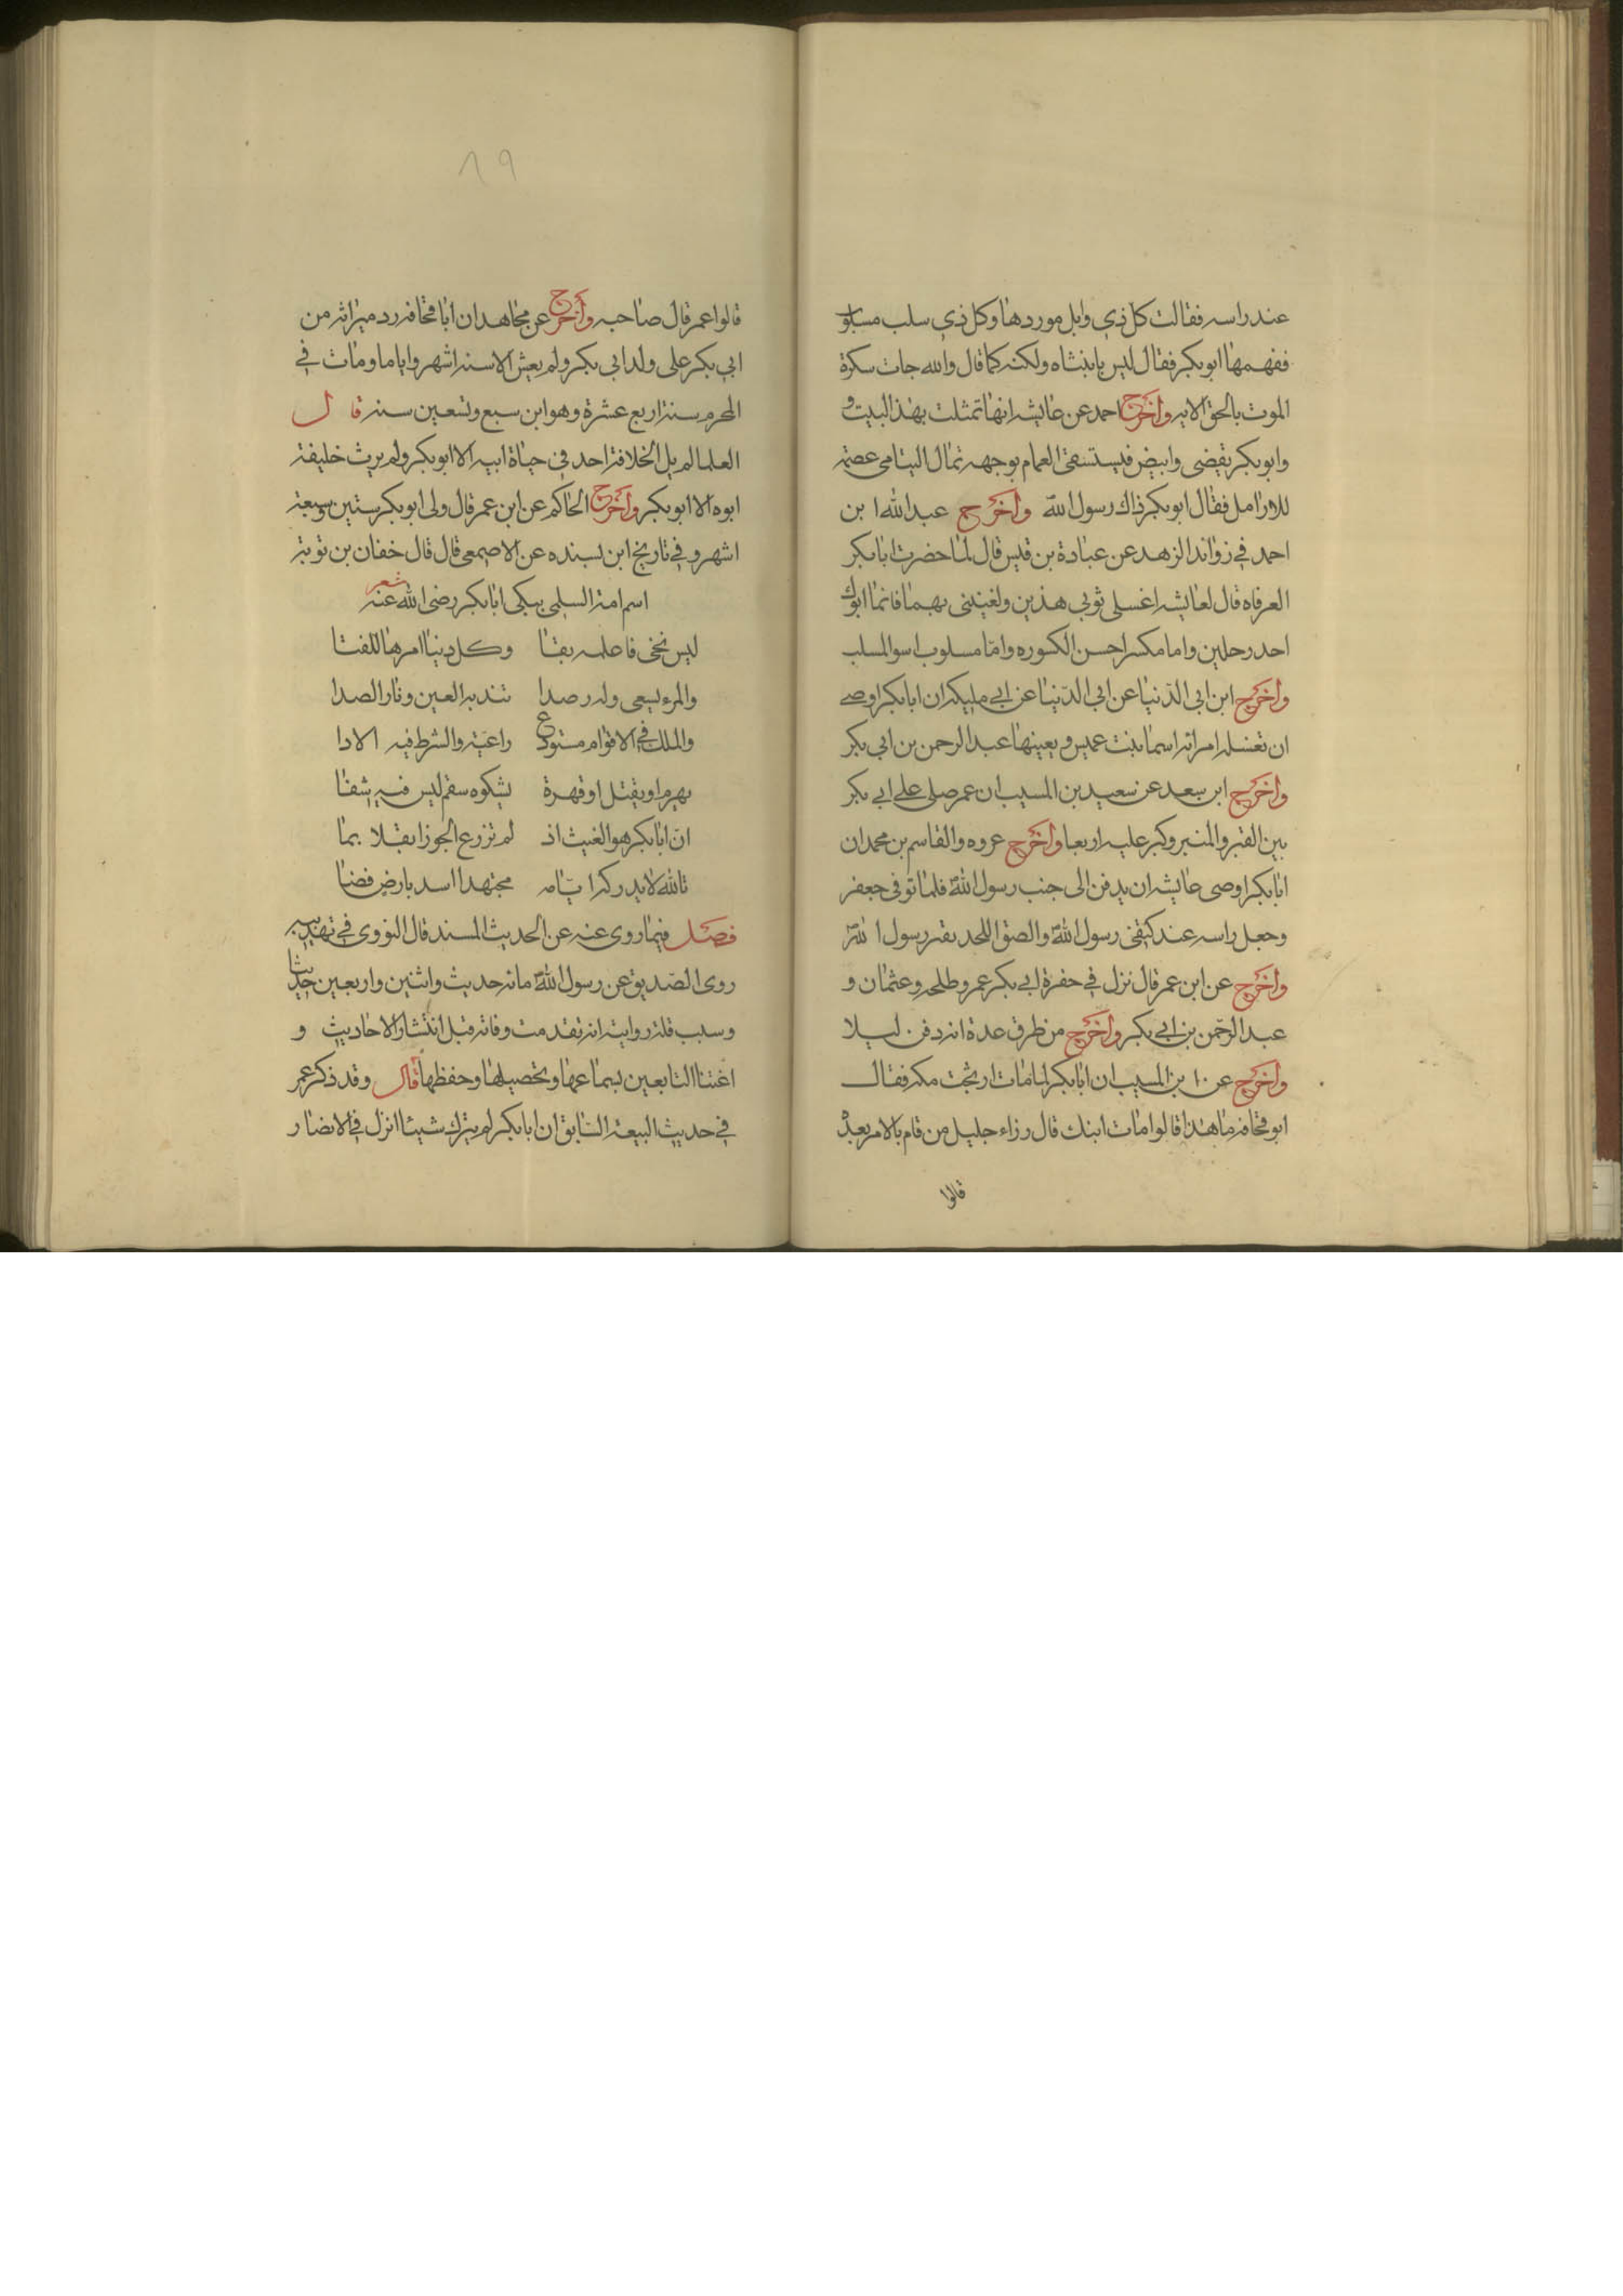 عند راسه فقالت كل ذي وابل موردها وكل ذي سلب مسلو
ففهمها ابو بكر فقال ليس يا بنتاه ولكنه كما قال والله جات سكرة
الموت بالحق الايه واخرج احمد عن عايشه انها تمثلت بهذا البيت و
وابو بكر يقضى وابيض فيستسقى الغمام بوجهه ثمال اليتامى عصمه
للارامل فقال ابو بكر ذاك رسول الله واخرج عبد الله ا بن
احمد في زوائد الزهد عن عبادة بن قيس قال لما حضرت ابا بكر
العرفاه قال لعايشه اغسلى ثوبى هذين ولغينى بهما فانما ابوك
احد رحلين واما مكسر احسن الكسوره واما مسلوب اسو المسلب
واخرج ابن ابي الدنيا عن ابي الدنيا عن ابي مليكه ان ابا بكر اوصى
ان تغسله امراته اسما بنت عميس ويعينها عبد الرحمن بن ابي بكر
واخرج ابن سعد عن سعيد بن المسيب ان عمر صلى على ابي بكر
بين القبر والمنبر وكبر عليه اربعا واخرج عروه والقاسم بن محمد ان
ابا بكر اوصى عايشه ان يدفن الى جنب رسول الله فلما توفى جعفر
وجعل راسه عند كتفى رسول الله والصق اللحد بقبر رسول الله
واخرج عن ابن عمر قال نزل في حفرة ابي بكر عمر وطلحه وعثمان و
عبد الرحمن بن ابي بكر واخرج من طرق عدة انه دفن ليلا
واخرج عن ابن المسيب ان ابا بكر لما مات ارتجت مكه فقال
ابو قحافه ما هذا قالوا مات ابنك قال رزاء جليل من قام بالامر بعده
قالوا
٨٩
قالوا عمر قال صاحبه واخرج عن مجاهد ان ابا قحافه رد ميراثه من
ابي بكر على ولد ابي بكر ولم يعش الا سنه اشهر واياما ومات في
المحرم سنة اربع عشرة وهو ابن سبع وتسعين سنه قال
العلما لم يل الخلافة احد في حياة ابيه الا ابو بكر ولم يرث خليفة
ابوه الا ابو بكر واخرج الحاكم عن ابن عمر قال ولى ابو بكر سنتين وسبعة
اشهر وفي تاريخ ابن بسنده عن الاصمعى قال قال خفان بن توبة
اسم امة السلمى يبكى ابا بكر رضى الله عنه شعر
ليس نخى فاعلمه بقا وكل دنيا امرها للفنا
والملك في الاقوام مستودع راعية والشرط فيه الادا
والمرء يسعى وله رصدا تندبه العين ونار الصدا
يهرم او يقتل او قهرة يشكوه سقم ليس فيه شفا
ان ابا بكر هو الغيث اذ لم تزرع الجوزا بقلا بما
تالله لا يدرك ايامه مجتهدا اسد بارض فضا
فصل فيما روى عنه عن الحديث المسند قال النووى في تهذيبه
روى الصديق عن رسول الله مائه حديث واثنين واربعين حديثا
وسبب قلة روايته انه تقدمت وفاته قبل انتشار الاحاديث و
اغتنا التابعين بسماعها وتحصيلها وحفظها قال وقد ذكر عمر
في حديث البيعه السابق ان ابا بكر لم يترك شيئا انزل في الانصار